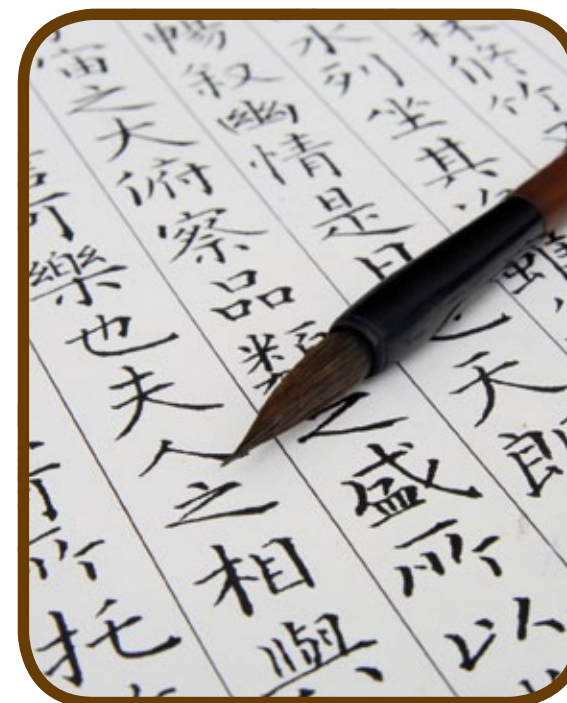 林修竹
水列坐其
暢叙幽情是日也天朗
宙之大俯察品類之盛所以
可樂也夫人之相與
所托